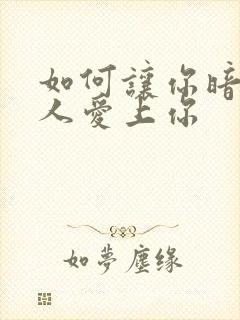 如何讓你暗
人愛上你
如夢塵缘